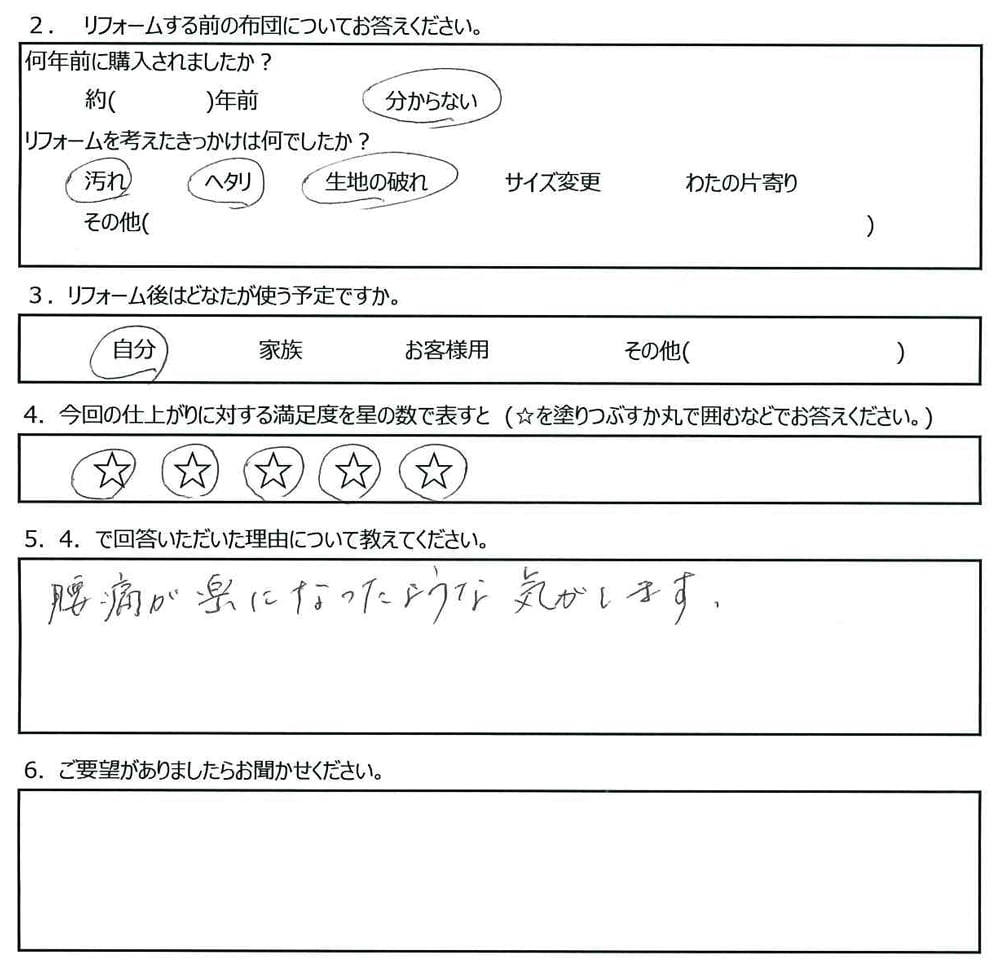 ２． リフォームする前の布団についてお答えください。
何年前に購入されましたか？
約( )年前 分からない
リフォームを考えたきっかけは何でしたか？
汚れ ヘタリ 生地の破れ サイズ変更 わたの片寄り
その他( )
３．リフォーム後はどなたが使う予定ですか。
自分 家族 お客様用 その他( )
４．今回の仕上がりに対する満足度を星の数で表すと（☆を塗りつぶすか丸で囲むなどでお答えください。）
☆ ☆ ☆ ☆ ☆
５．４．で回答いただいた理由について教えてください。
腰痛が楽になったような気がします。
６．ご要望がありましたらお聞かせください。